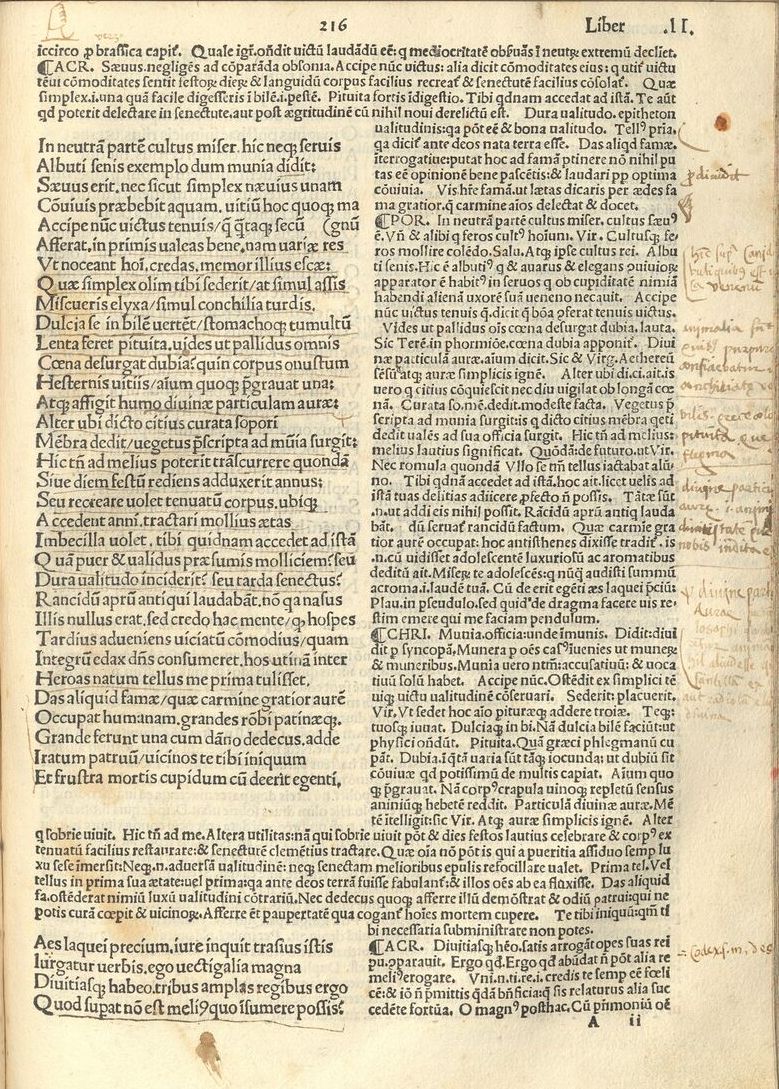 216
Liber .II.
iccirco ꝓ brassica capit᷑. Quale igr̃. ondit uictũ laudãdũ eẽ: q mediocritatẽ obſuãs ĩ neutꝝ extremũ decliet.
¶ACR. Sæuus. negligẽs ad cõparãda obſonia. Accipe nũc uictus: alia dicit cõmoditates eius: q utit᷑ uictu
tẽui cõmoditates ſentit
ſimplex .i. una quã facile digeſſeris ĩ bilẽ .i. peſtẽ. Pituita fortis ĩdigeſtio. Tibi qdnam accedat ad iſtã. Te aũt
qd poterit delectare in ſenectute. aut poſt ægritudinẽ cũ nihil noui derelictũ eſt. Dura ualitudo. epitheton
In neutrã partẽ cultus miſer. hic neqꝫ ſeruis
Albuti ſenis exemplo dum munia didit:
Sæuus erit. nec ſicut ſimplex næuius unam
Cõuiuis præbebit aquam. uitiũ hoc quoqꝫ ma
Accipe nũc uictus tenuis/ q̃ q̃taqꝫ ſecũ (gnũ
Afferat. in primis ualeas bene. nam uariæ res
Vt noceant hoĩ. credas. memor illius eſcæ:
Quæ ſimplex olim tibi ſederit/ at ſimul aſſis
Miſcueris elyxa/ ſimul conchilia turdis.
Dulcia ſe in bilẽ uertẽt/ ſtomachoqꝫ tumultũ
Lenta feret pituita. uides ut pallidus omnis
Cœna deſurgat dubia? quin corpus onuſtum
Heſternis uitiis/ aĩum quoqꝫ p̃grauat una:
Atqꝫ affigit humo diuinæ particulam auræ:
Alter ubi dicto citius curata ſopori
Mẽbra dedit/ uegetus p̃ſcripta ad mũia ſurgit:
Hic tñ ad melius poterit trãſcurrere quondã
Siue diem feſtũ rediens adduxerit annus:
Seu recreare uolet tenuatũ corpus. ubiqꝫ
Accedent anni. tractari mollius ætas
Imbecilla uolet. tibi quidnam accedet ad iſtã
Quã puer & ualidus præſumis molliciem? ſeu
Dura ualitudo inciderit? ſeu tarda ſenectus?
Rancidũ aprũ antiqui laudabãt. nõ qa naſus
Illis nullus erat. ſed credo hac mente/ qꝫ hoſpes
Tardius adueniens uiciatũ cõmodius/ quam
Integrũ edax dñs conſumeret. hos utinã inter
Heroas natum tellus me prima tuliſſet.
Das aliquid famæ/ quæ carmine gratior aurẽ
Occupat humanam. grandes rõbi patinæqꝫ.
Grande ferunt una cum dãno dedecus. adde
Iratum patruũ/ uicinos te tibi iniquum
Et fruſtra mortis cupidum cũ deerit egenti.
ualitudinis: qa põt eẽ & bona ualitudo. Tellꝰ pria.
qa dicit᷑ ante deos nata terra eſſe. Das aliqd famæ.
ĩterrogatiue: putat hoc ad famã ptinere nõ nihil pu
tas eẽ opinionẽ bene paſcẽtis: & laudari pp optima
cõuiuia. Vis hr̃e famã. ut lætas dicaris per ædes fa
ma gratior. q carmine aĩos delectat & docet.
¶POR. In neutrã partẽ cultus miſer. cultus ſæuꝰ
ẽ. Vñ & alibi q feros cultꝰ hoĩum. Vir. Cultuſqꝫ fe⸗
ros mollire colẽdo. Salu. Atqꝫ ipſe cultus rei. Albu
ti ſenis. Hic ẽ albutiꝰ q & auarus & elegans
apparator ẽ habitꝰ in ſeruos q ob cupiditatẽ nimiã
habendi alienã uxorẽ ſuã ueneno necauit. Accipe
nũc uictus tenuis q. dicit q bõa ꝓferat tenuis uictus.
Vides ut pallidus oĩs cœna deſurgat dubia. lauta.
Sic Terẽ. in phormiõe. cœna dubia apponit᷑. Diui
næ particulã auræ. aĩum dicit. Sic & Virg. Aethereũ
ſẽſũ atqꝫ auræ ſimplicis ignẽ. Alter ubi di. ci. ait. is
uero q citius cõquieſcit nec diu uigilat ob longã cœ
nã. Curata ſo. mẽ. dedit. modeſte facta. Vegetus p̃
ſcripta ad munia ſurgit: is q dicto citius mẽbra qeti
dedit ualẽs ad ſua officia ſurgit. Hic tñ ad melius:
melius lautius ſignificat. Quõdã: de futuro. ut Vir.
Nec romula quondã Vllo ſe tm̃ tellus iactabat alũ⸗
no. Tibi qdnã accedet ad iſtã. hoc ait. licet uelis ad
iſtã tuas delitias adiicere ꝓfecto ñ poſſis. Tãtæ ſũt
.n. ut addi eis nihil poſſit. Rãcidũ aprũ antiq lauda
bãt. dũ ſeruat᷑ rancidũ factum. Quæ carmie gra
tior aurẽ occupat: hoc antiſthenes dixiſſe tradit᷑. is
.n. cũ uidiſſet adoleſcentẽ luxurioſũ ac aromatibus
deditũ ait. Miſeꝝ te adoleſcẽs: q nũq̃ audiſti ſummũ
acroma .i. laudẽ tuã. Cũ de erit egẽti æs laquei p̃ciũ:
Plau. in pſeudulo. ſed quidꝰ de dragma facere uis re⸗
ſtim emere qui me faciam pendulum.
¶CHRI. Munia. officia: unde ĩmunis. Didit: diui
dit p ſyncopã. Munera p oẽs caſꝰ ĩuenies ut munere
& muneribus. Munia uero ntm̃: accuſatiuũ: & uoca
tiuũ ſolũ habet. Accipe nũc. Oſtẽdit ex ſimplici tẽ
uiqꝫ uictu ualitudinẽ cõſeruari. Sederit: placuerit.
Vir. Vt ſedet hoc aĩo pituræqꝫ addere troiæ. Teqꝫ:
tuoſqꝫ iuuat. Dulciaqꝫ in bi. Nã dulcia bilẽ faciũt: ut
phyſici oñdũt. Pituita. Quã græci phlegmanũ cu
pãt. Dubia. ĩ q̃ tã uaria ſũt tãqꝫ iocunda: ut dubiũ ſit
cõuiuæ qd potiſſimũ de multis capiat. Aĩum quo
qꝫ p̃grauat. Nã corpꝰ crapula uinoqꝫ repletũ ſenſus
aniniũqꝫ hebetẽ reddit. Particulã diuinæ auræ. Mẽ
tẽ ĩtelligit: ſic Vir. Atqꝫ auræ ſimplicis ignẽ. Alter
q ſobrie uiuit. Hic tñ ad me. Altera utilitas: nã qui ſobrie uiuit põt & dies feſtos lautius celebrare & corpꝰ ex
tenuatũ facilius reſtaurare: & ſenectutẽ clemẽtius tractare. Quæ oĩa nõ põt is qui a pueritia aſſiduo ſemp lu
xu ſeſe ĩmerſit: Neqꝫ .n. aduerſã ualitudinẽ: neqꝫ ſenectam melioribus epulis refocillare ualet. Prima tel. Vel
tellus in prima ſua ætate: uel prima: qa ante deos terrã fuiſſe fabulant᷑: & illos oẽs ab ea fluxiſſe. Das aliquid
fa. oſtẽderat nimiũ luxũ ualitudini cõtrariũ. Nec dedecus quoqꝫ afferre illũ demõſtrat & odiũ patrui: qui ne
potis curã cœpit & uicinoꝝ. Afferre ẽt paupertatẽ qua cogant᷑ hoĩes mortem cupere. Te tibi iniquũ: qm̃ ti
bi neceſſaria ſubminiſtrate non potes.
Aes laquei precium. iure inquit traſius iſtis
Iurgatur uerbis. ego uectigalia magna
Diuitiaſqꝫ habeo. tribus amplas regibus ergo
Quod ſupat nõ eſt meliꝰ quo ĩſumere poſſis?
¶ACR. Diuitiaſqꝫ hẽo. ſatis arrogãt opes ſuas rei
pu. oparauit. Ergo qd. Ergo qd abũdat ñ põt alia re
meliꝰ erogare. Vni. n. ti. re. i. credis te ſemp eẽ fœli
cẽ: & iõ ñ p̃mittis q̃dã bñficia: q̃ ſis relaturus alia ſuc
cedẽte fortũa. O magnꝰ poſthac. Cũ p̃rimoniũ oẽ
A ii